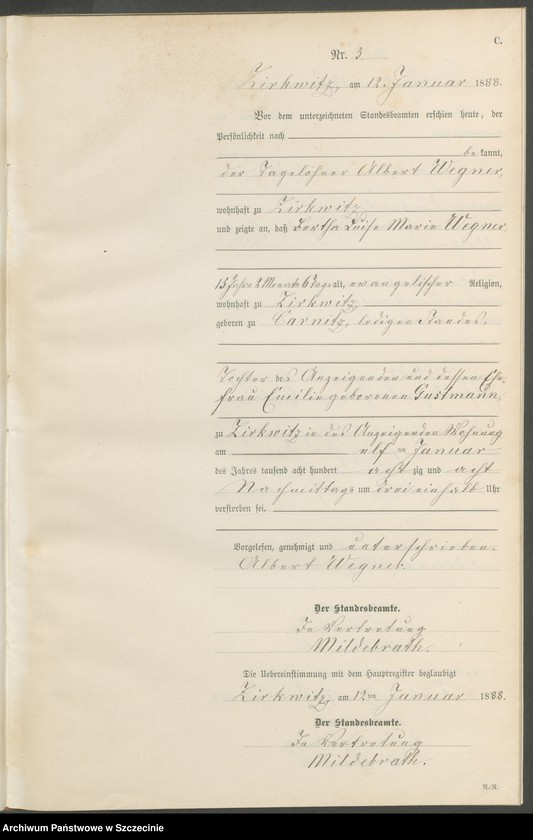 C.
Nr. 3
Zirkwitz, am 12. Januar 1888.
Vor dem unterzeichneten Standesbeamten erschien heute, der
Persönlichkeit nach
be kannt,
der Tagelöhner Albert Wegner,
wohnhaft zu Zirkwitz,
und zeigte an, daß Bertha Luise Marie Wegner,
15 Jahre 2 Monate 6 Tage alt, evangelischer Religion,
wohnhaft zu Zirkwitz,
geboren zu Carnitz, ledigen Standes,
Tochter des Anzeigenden und dessen Ehe-
frau Emilie geborenen Gustmann,
zu Zirkwitz in des Anzeigenden Wohnung
am elf ten Januar
des Jahres tausend acht hundert acht zig und acht
Nachmittags um drei einhalb Uhr
verstorben sei.
Vorgelesen, genehmigt und unterschrieben.
Albert Wegner.
Der Standesbeamte.
In Vertretung
Mildebrath.
Die Uebereinstimmung mit dem Hauptregister beglaubigt
Zirkwitz, am 12ten Januar 1888.
Der Standesbeamte.
In Vertretung
Mildebrath.
Archiwum Państwowe w Szczecinie